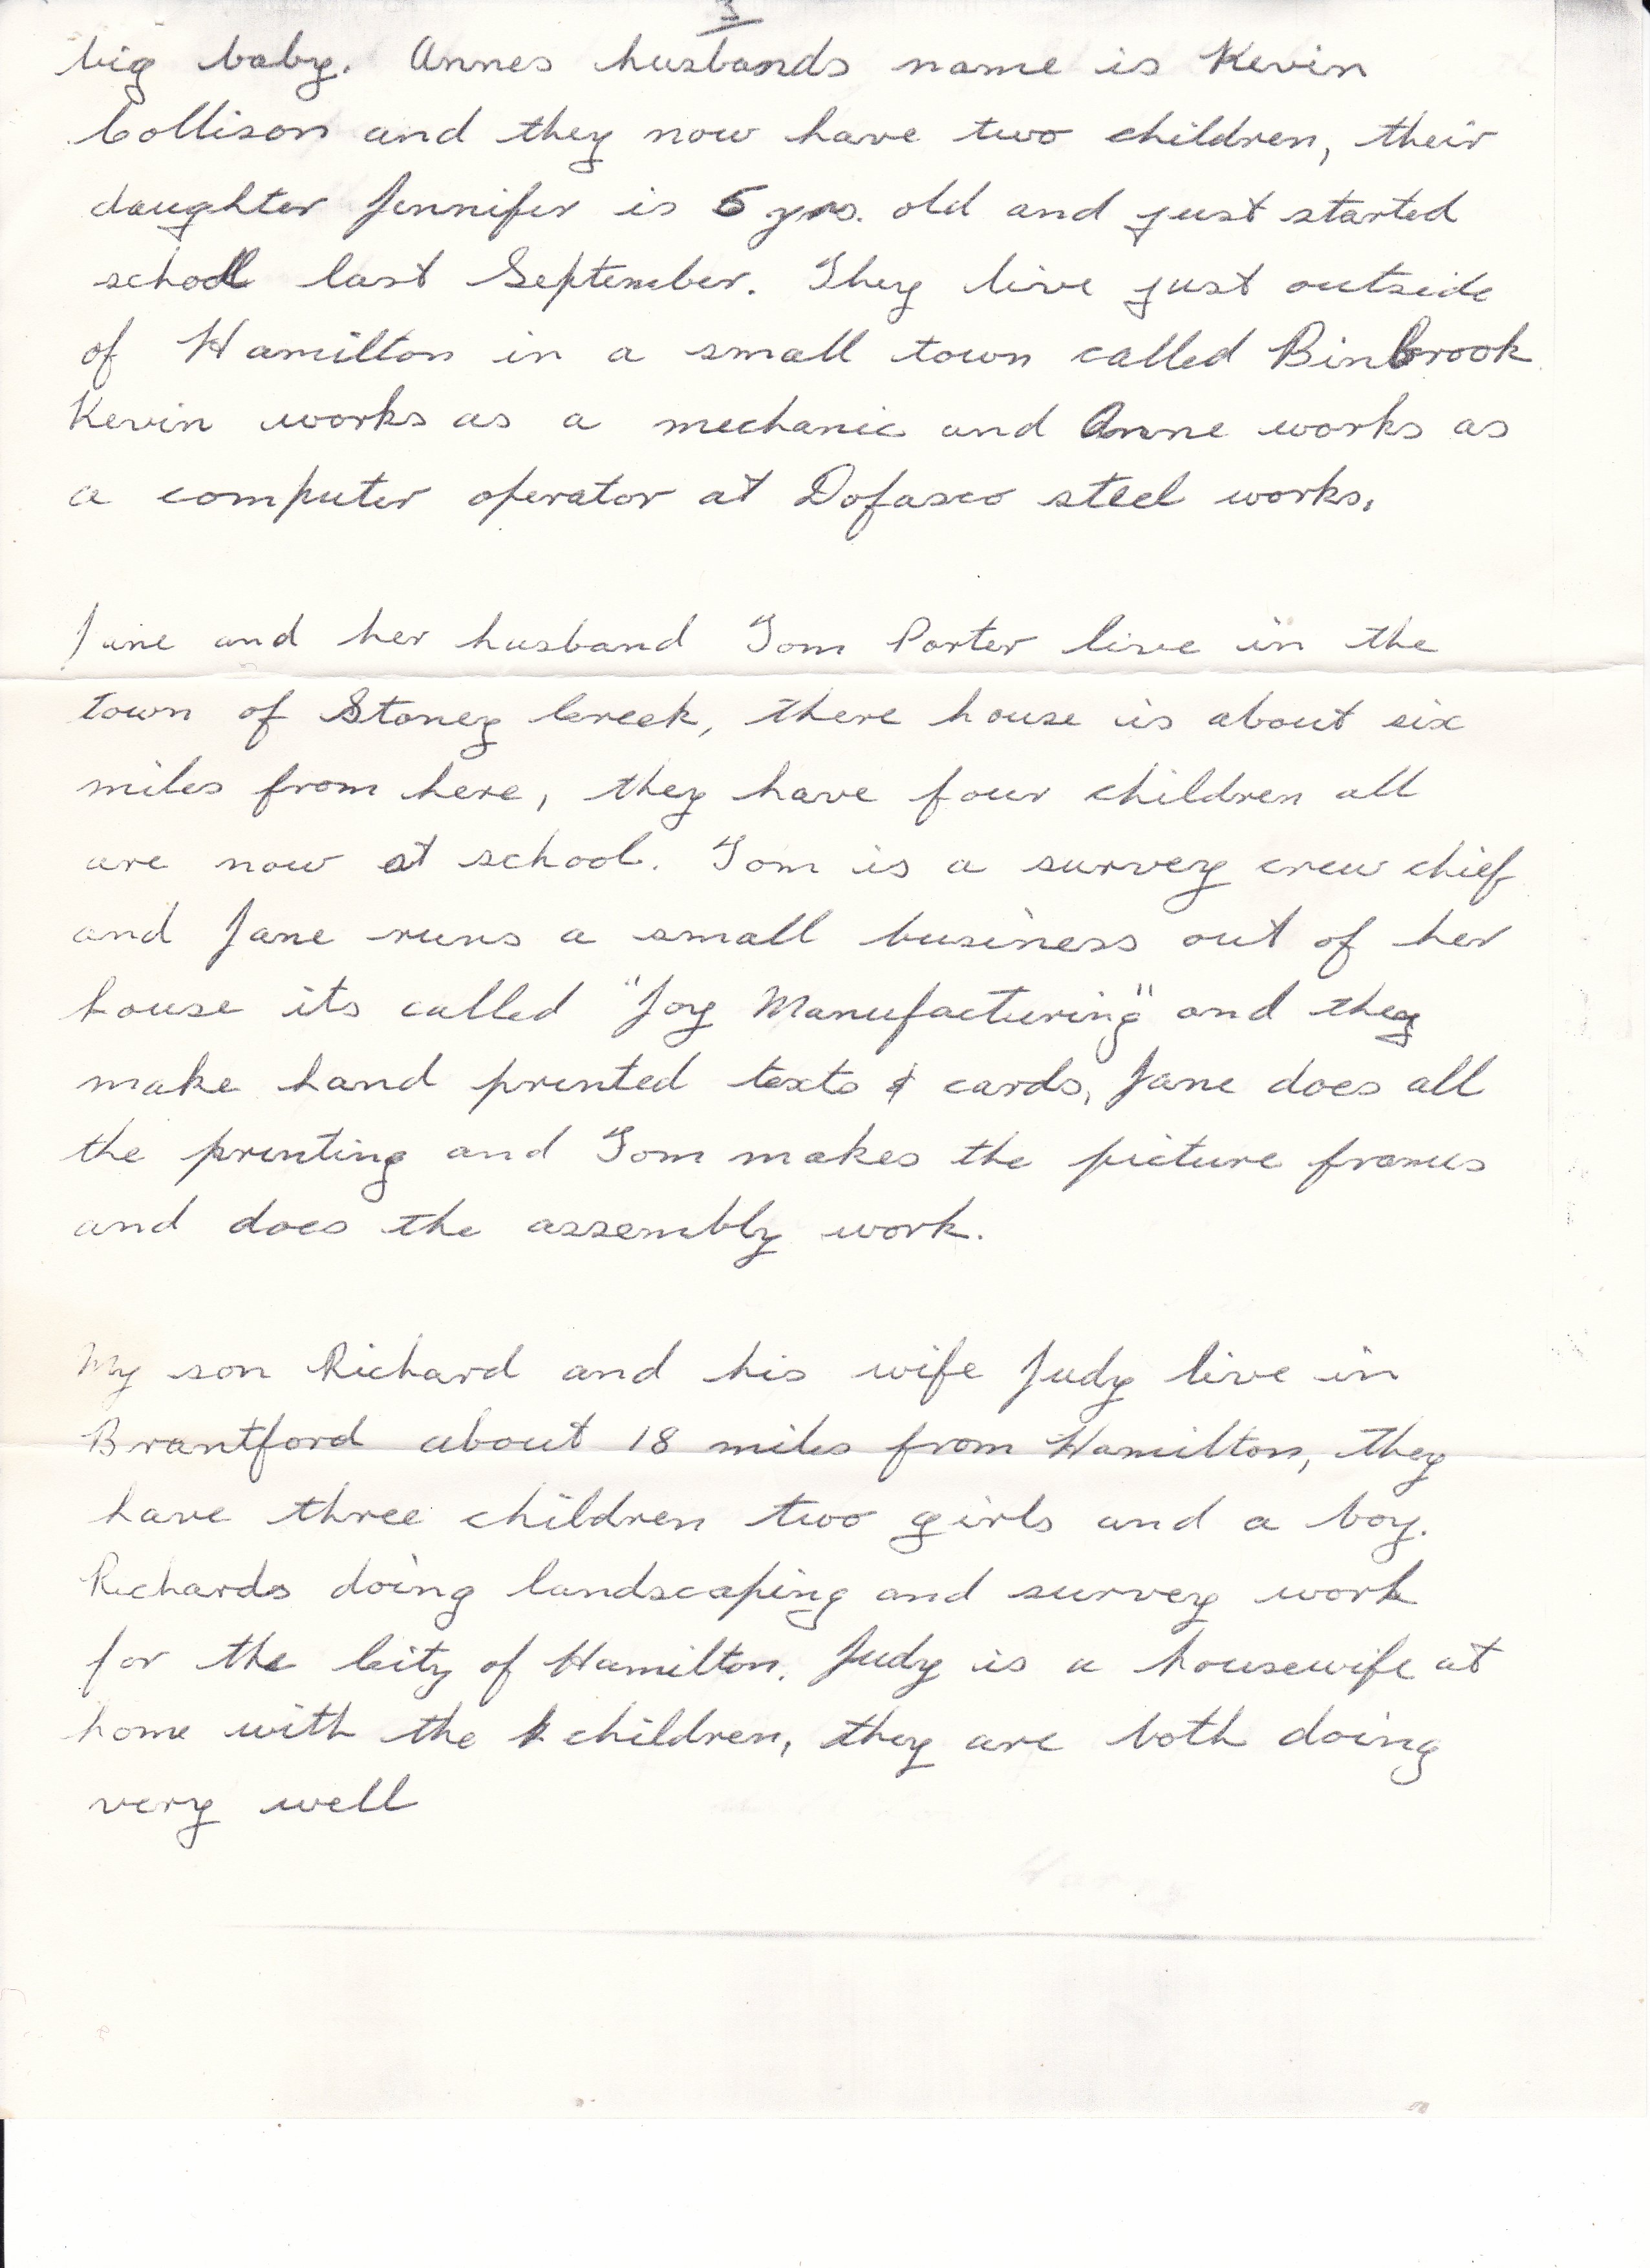 3
big baby. Annes husbands name is Kevin
Collison and they now have two children, their
daughter Jennifer is 5 yrs. old and just started
school last September. They live just outside
of Hamilton in a small town called Binbrook
Kevin works as a mechanic and Anne works as
a computer operator at Dofasco steel works.
Jane and her husband Tom Porter live in the
town of Stoney Creek, there house is about six
miles from here, they have four children all
are now at school. Tom is a survey crew chief
and Jane runs a small business out of her
house its called "Joy Manufacturing" and they
make hand printed texts & cards, Jane does all
the printing and Tom makes the picture frames
and does the assembly work.
My son Richard and his wife Judy live in
Brantford about 18 miles from Hamilton, they
have three children two girls and a boy.
Richards doing landscaping and survey work
for the City of Hamilton. Judy is a housewife at
home with the children, they are both doing
very well